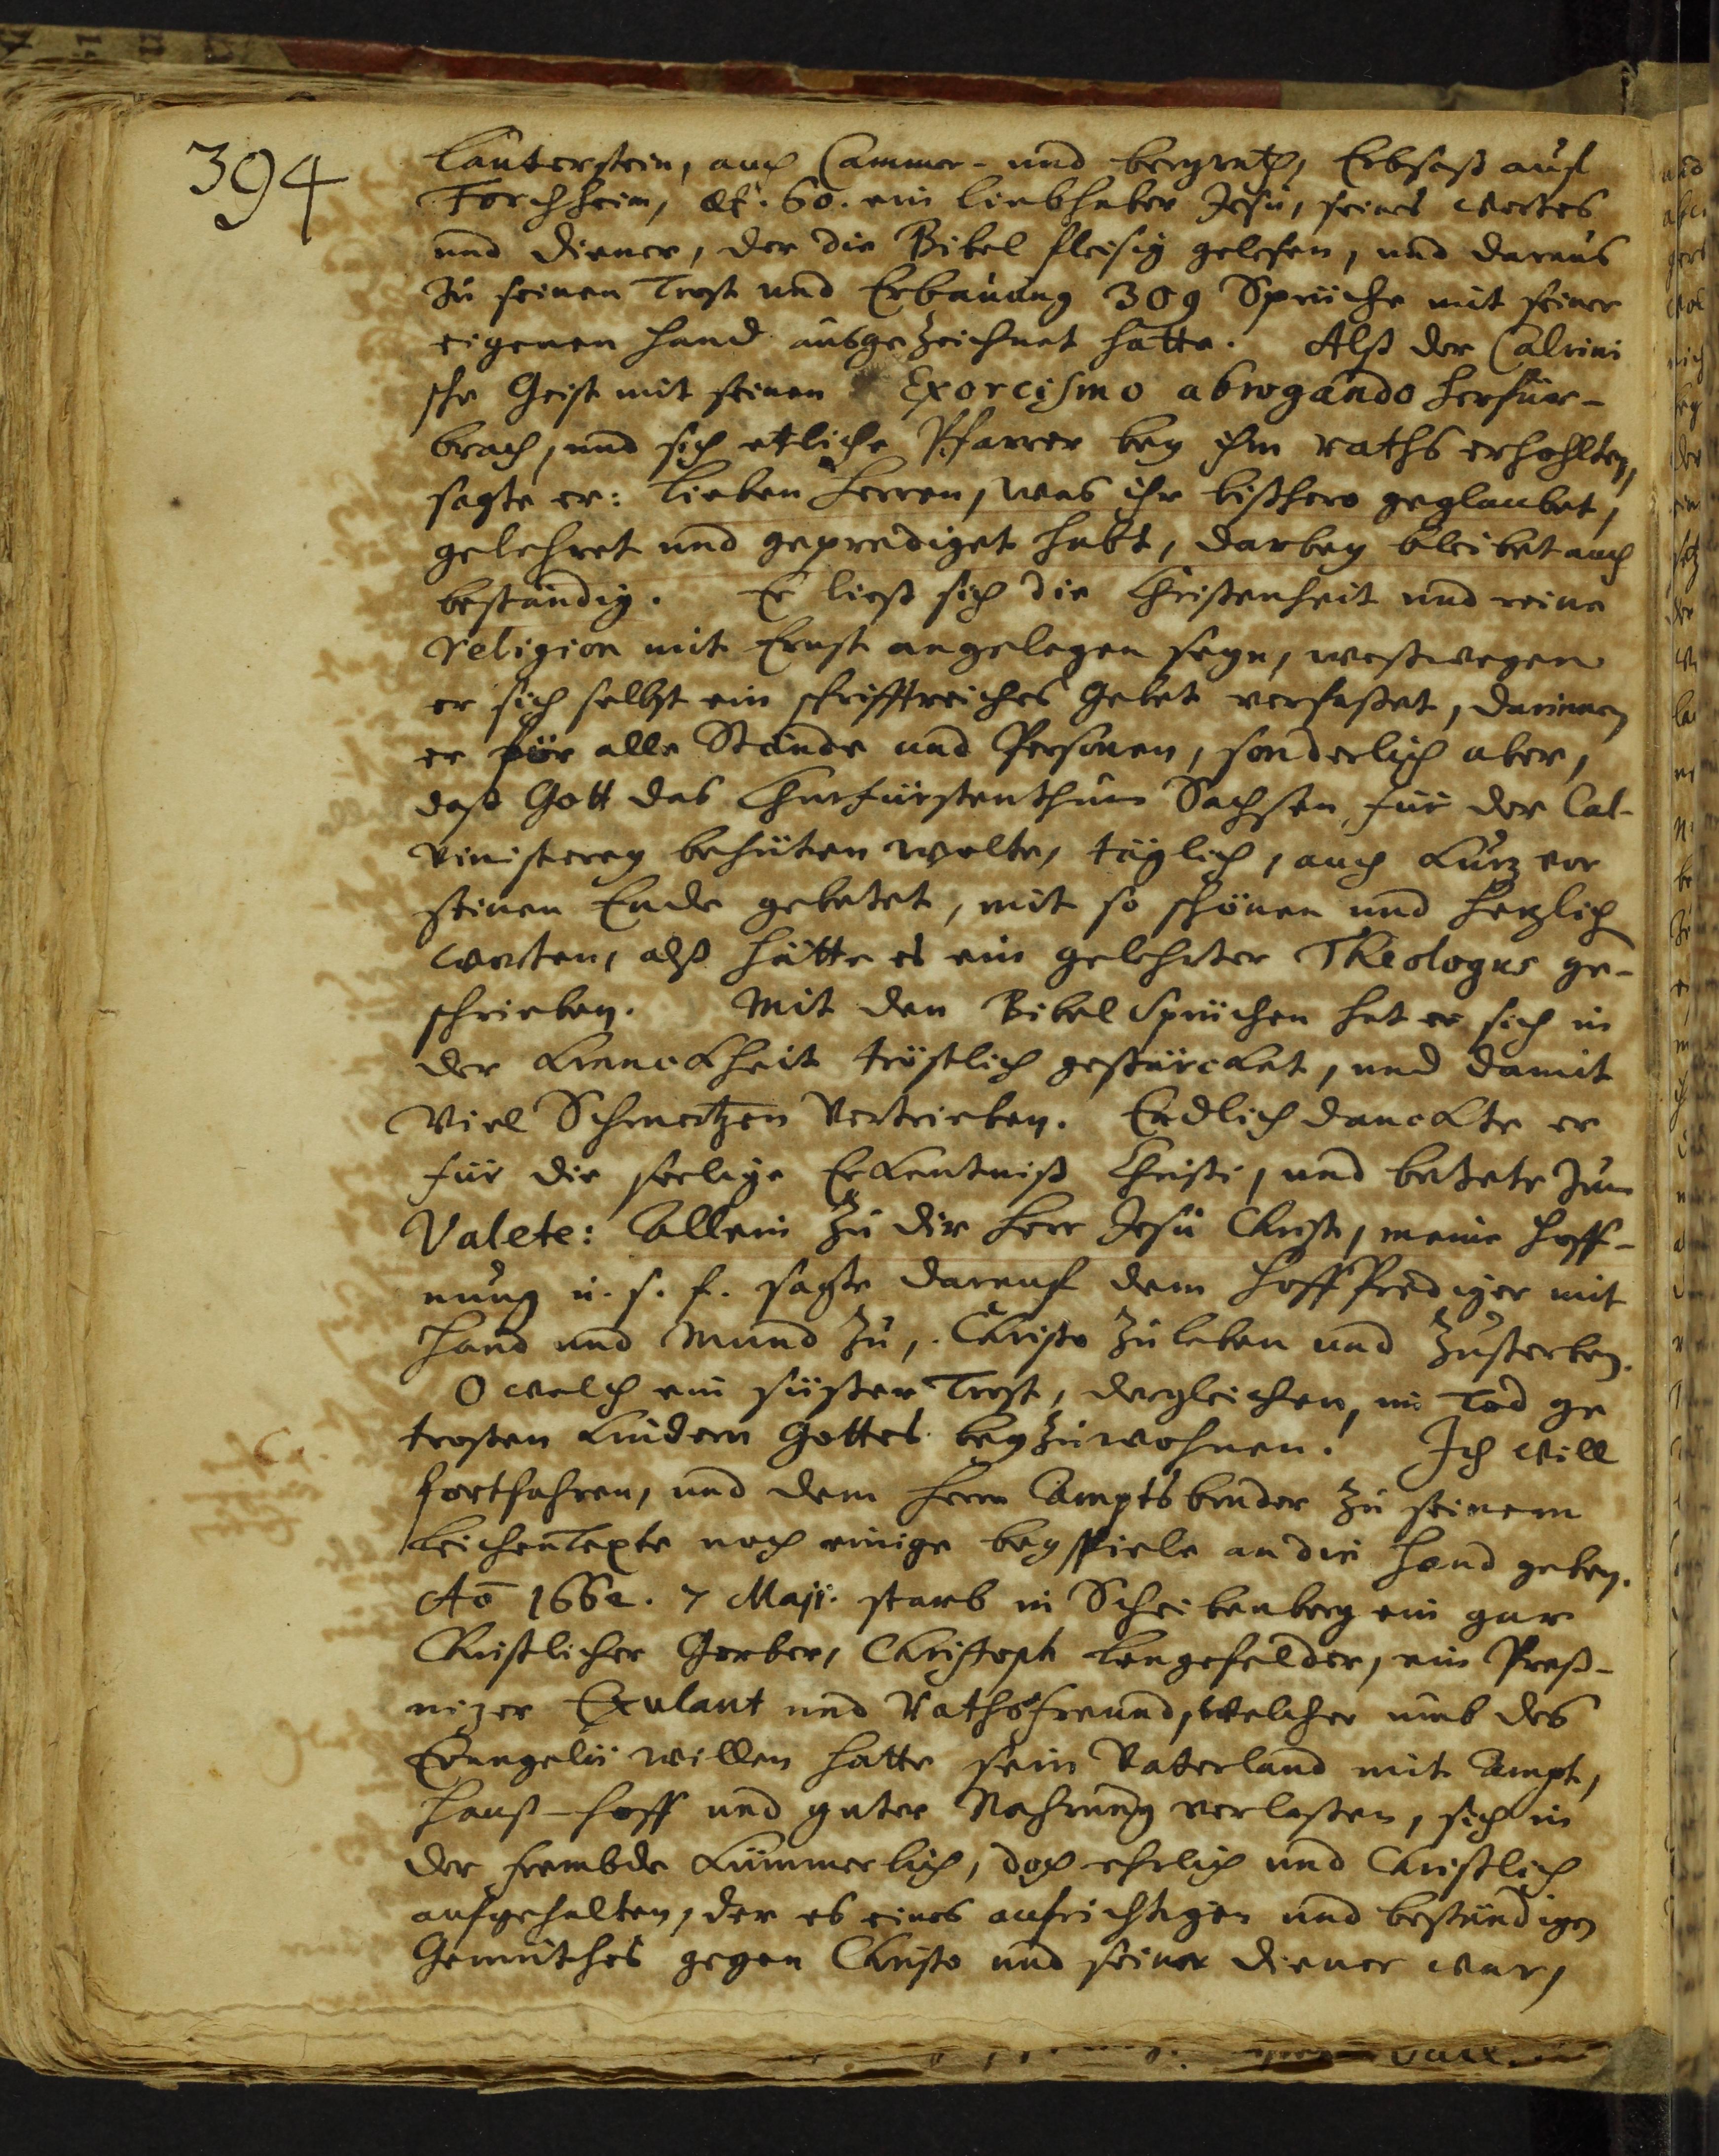 394
Lauterstein, auch Cammer- und bergrath, Erbsaß auf
Forchheim, æt. 60. ein liebhaber Jesu, seines wortes
und diener, der die Bibel fleisig gelesen, und daraus
zu seinen Trost und Erbauung 309 Sprüche mit seiner
eigenen hand ausgezeichnet hatte. Alß der Calvini
sche Geist mit seinen Exorcismo abrogando herfür-
brach, und sich etliche Pfarrer bey ihm raths erhohlten,
sagte er: lieben herren, was ihr bißhero geglaubet,
gelehret und geprediget habt, darbey bleibet auch
beständig. Er ließ sich die Christenheit und reine
religion mit Ernst angelegen seyn, weßwegen
er sich selbst ein schrifftreiches Gebet verfaßet, darinnen
er für alle Stände und Personen, sonderlich aber,
daß Gott das Churfürstenthum Sachsen für der Cal-
vinisterey behüten wolte, täglich, auch kurz vor
seinen Ende gebetet, mit so schönen und herzlich
worten, alß hätte es ein gelehrter Theologus ge-
schrieben. Mit den Bibel Sprüchen hat er sich in
der kranckheit tröstlich gestärcket, und damit
viel Schmertzen vertrieben. Endlich danckte er
für die seelige Erkentniß Christi, und betete zum
Valete: Allein zu dir herr Jesu Christ, meine hoff-
nung u. s. f. sagte darauf dem hoffprediger mit
hand und Mund zu, Christo zu leben und zu sterben.
O welch ein süßer Trost, dergleichen, im Tod ge
trosten kindern Gottes beyzuwohnen! Ich will
fortfahren, und dem herrn Ampts bruder zu seinem
leichen Texte noch einige beyspiele an die hand geben.
Ao 1662. 7 Maji. starb in Scheibenberg ein gar
Christlicher Gerber, Christoph Lengefelder, ein Preß-
nizer Exulant und Rathsfreund, welcher umb des
Evangelii willen hatte sein Vaterland mit Ampt,
hauß-hoff und guter Nahrung verlaßen, sich in
der frembde kümmerlich, doch ehrlich und Christlich
aufgehalten, der es eines aufrichtigen und beständigen
Gemüthes gegen Christo und seiner diener war,